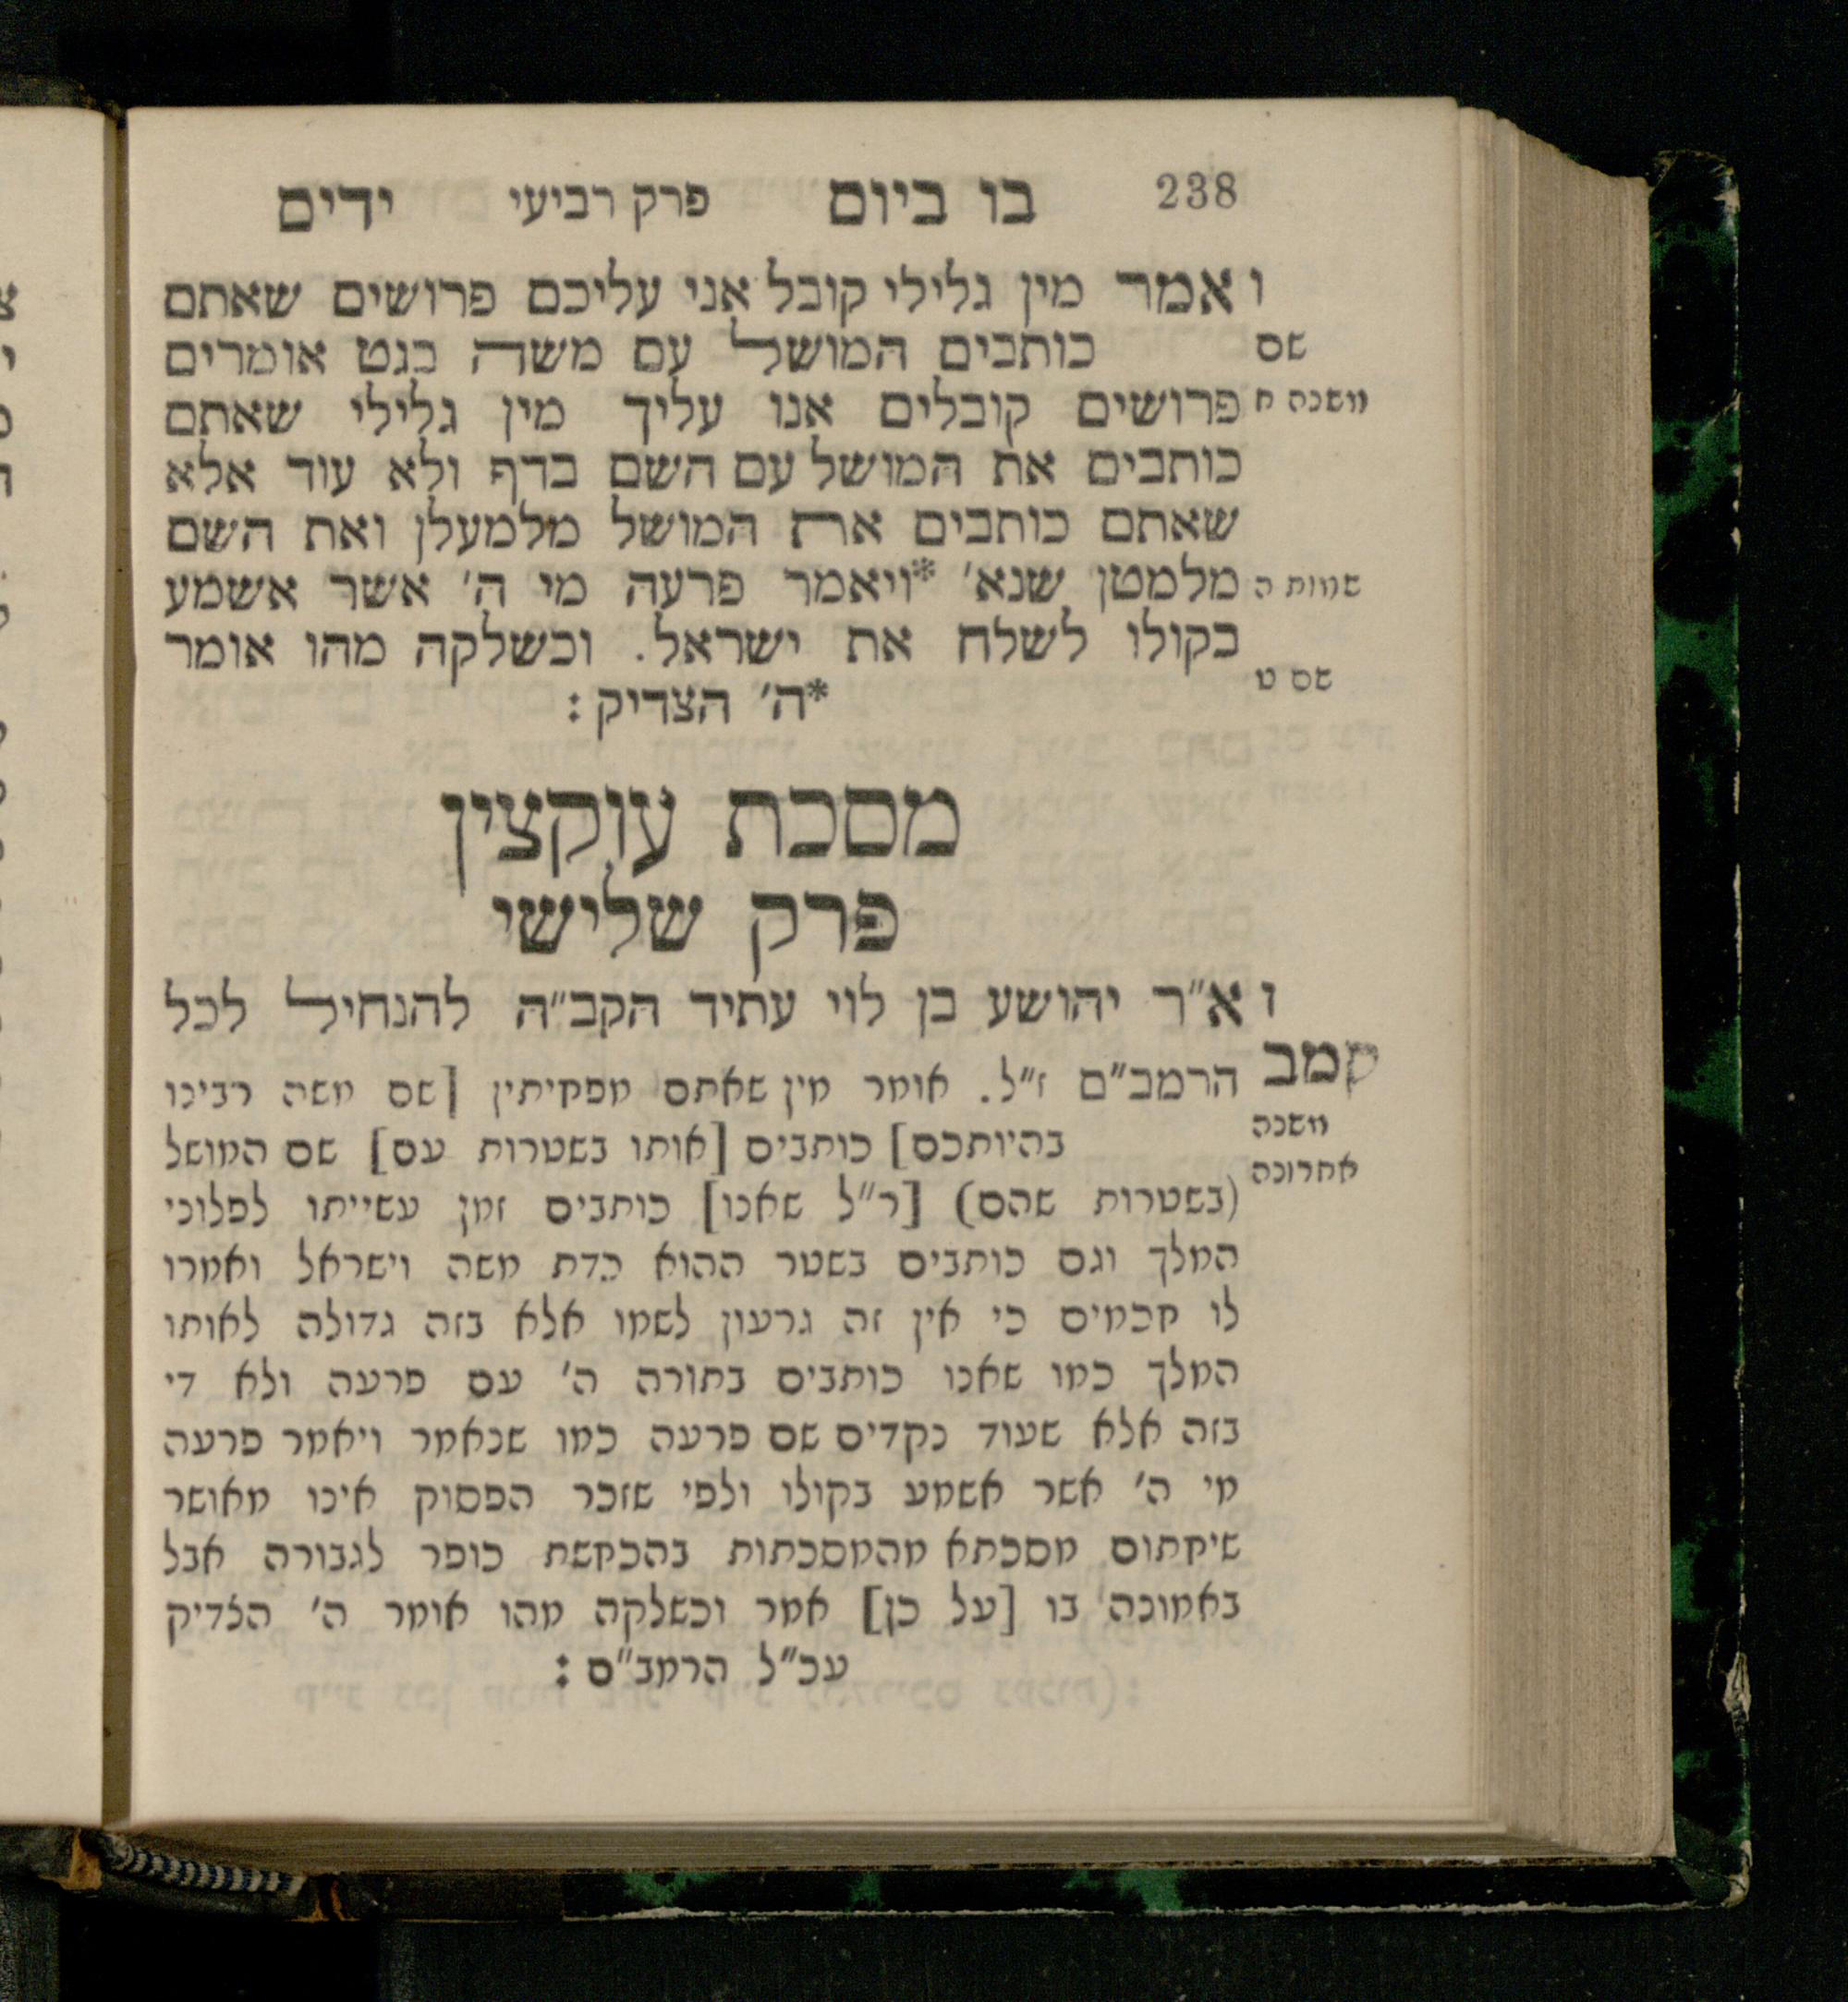 238 בו ביום פרק רביעי ידים
ו אמר מין גלילי קובל אני עליכם פרושים שאתם
שם כותבים המושל עם משה בגט אומרים
משנה ח פרושים קובלים אנו עליך מין גלילי שאתם
כותבים את המושל עם השם בדף ולא עוד אלא
שאתם כותבים את המושל מלמעלן ואת השם
שמות ה מלמטן שנא׳ *ויאמר פרעה מי ה׳ אשר אשמע
בקולו לשלח את ישראל. וכשלקה מהו אומר
שם ט *ה׳ הצדיק :
מסכת עוקצין
פרק שלישי
ו א״ר יהושע בן לוי עתיד הקב״ה להנחיל לכל
קמב
משנה
אחרונה
הרמב״ם ז״ל. אומר מין שאתם מפחיתין [שם משה רבינו
בהיותכם] כותבים [אותו בשטרות עם] שם המושל
(בשטרות שהם) [ר״ל שאנו] כותבים זמן עשייתו לפלוני
המלך וגם כותבים בשטר ההוא כדת משה וישראל ואמרו
לו חכמים כי אין זה גרעון לשמו אלא בזה גדולה לאותו
המלך כמו שאנו כותבים בתורה ה׳ עם פרעה ולא די
בזה אלא שעוד נקדים שם פרעה כמו שנאמר ויאמר פרעה
מי ה׳ אשר אשמע בקולו ולפי שזכר הפסוק אינו מאושר
שיחתום מסכתא מהמסכתות בהכחשת כופר לגבורה אבל
באמונה בו [על כן] אמר וכשלקה מהו אומר ה׳ הצדיק
עכ״ל הרמב״ם :